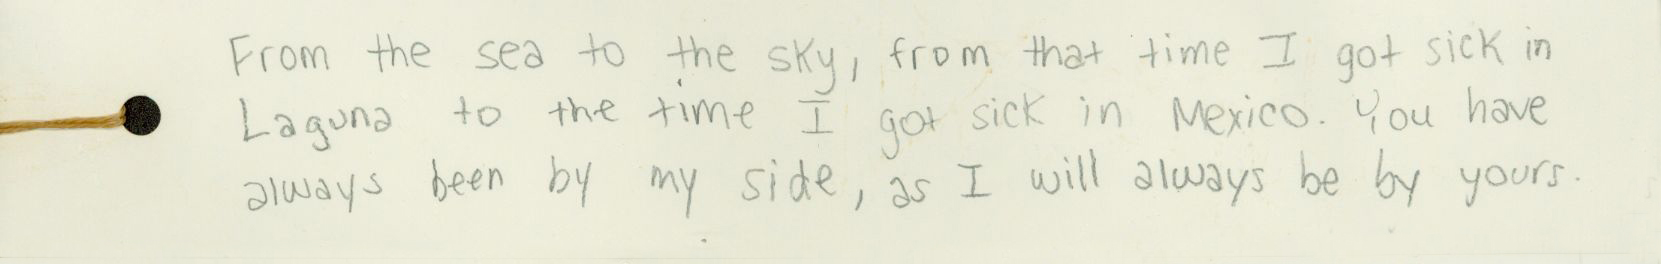 From the sea to the sky, from that time I got sick in
Laguna to the time I got sick in Mexico. You have
always been by my side, as I will always be by yours.